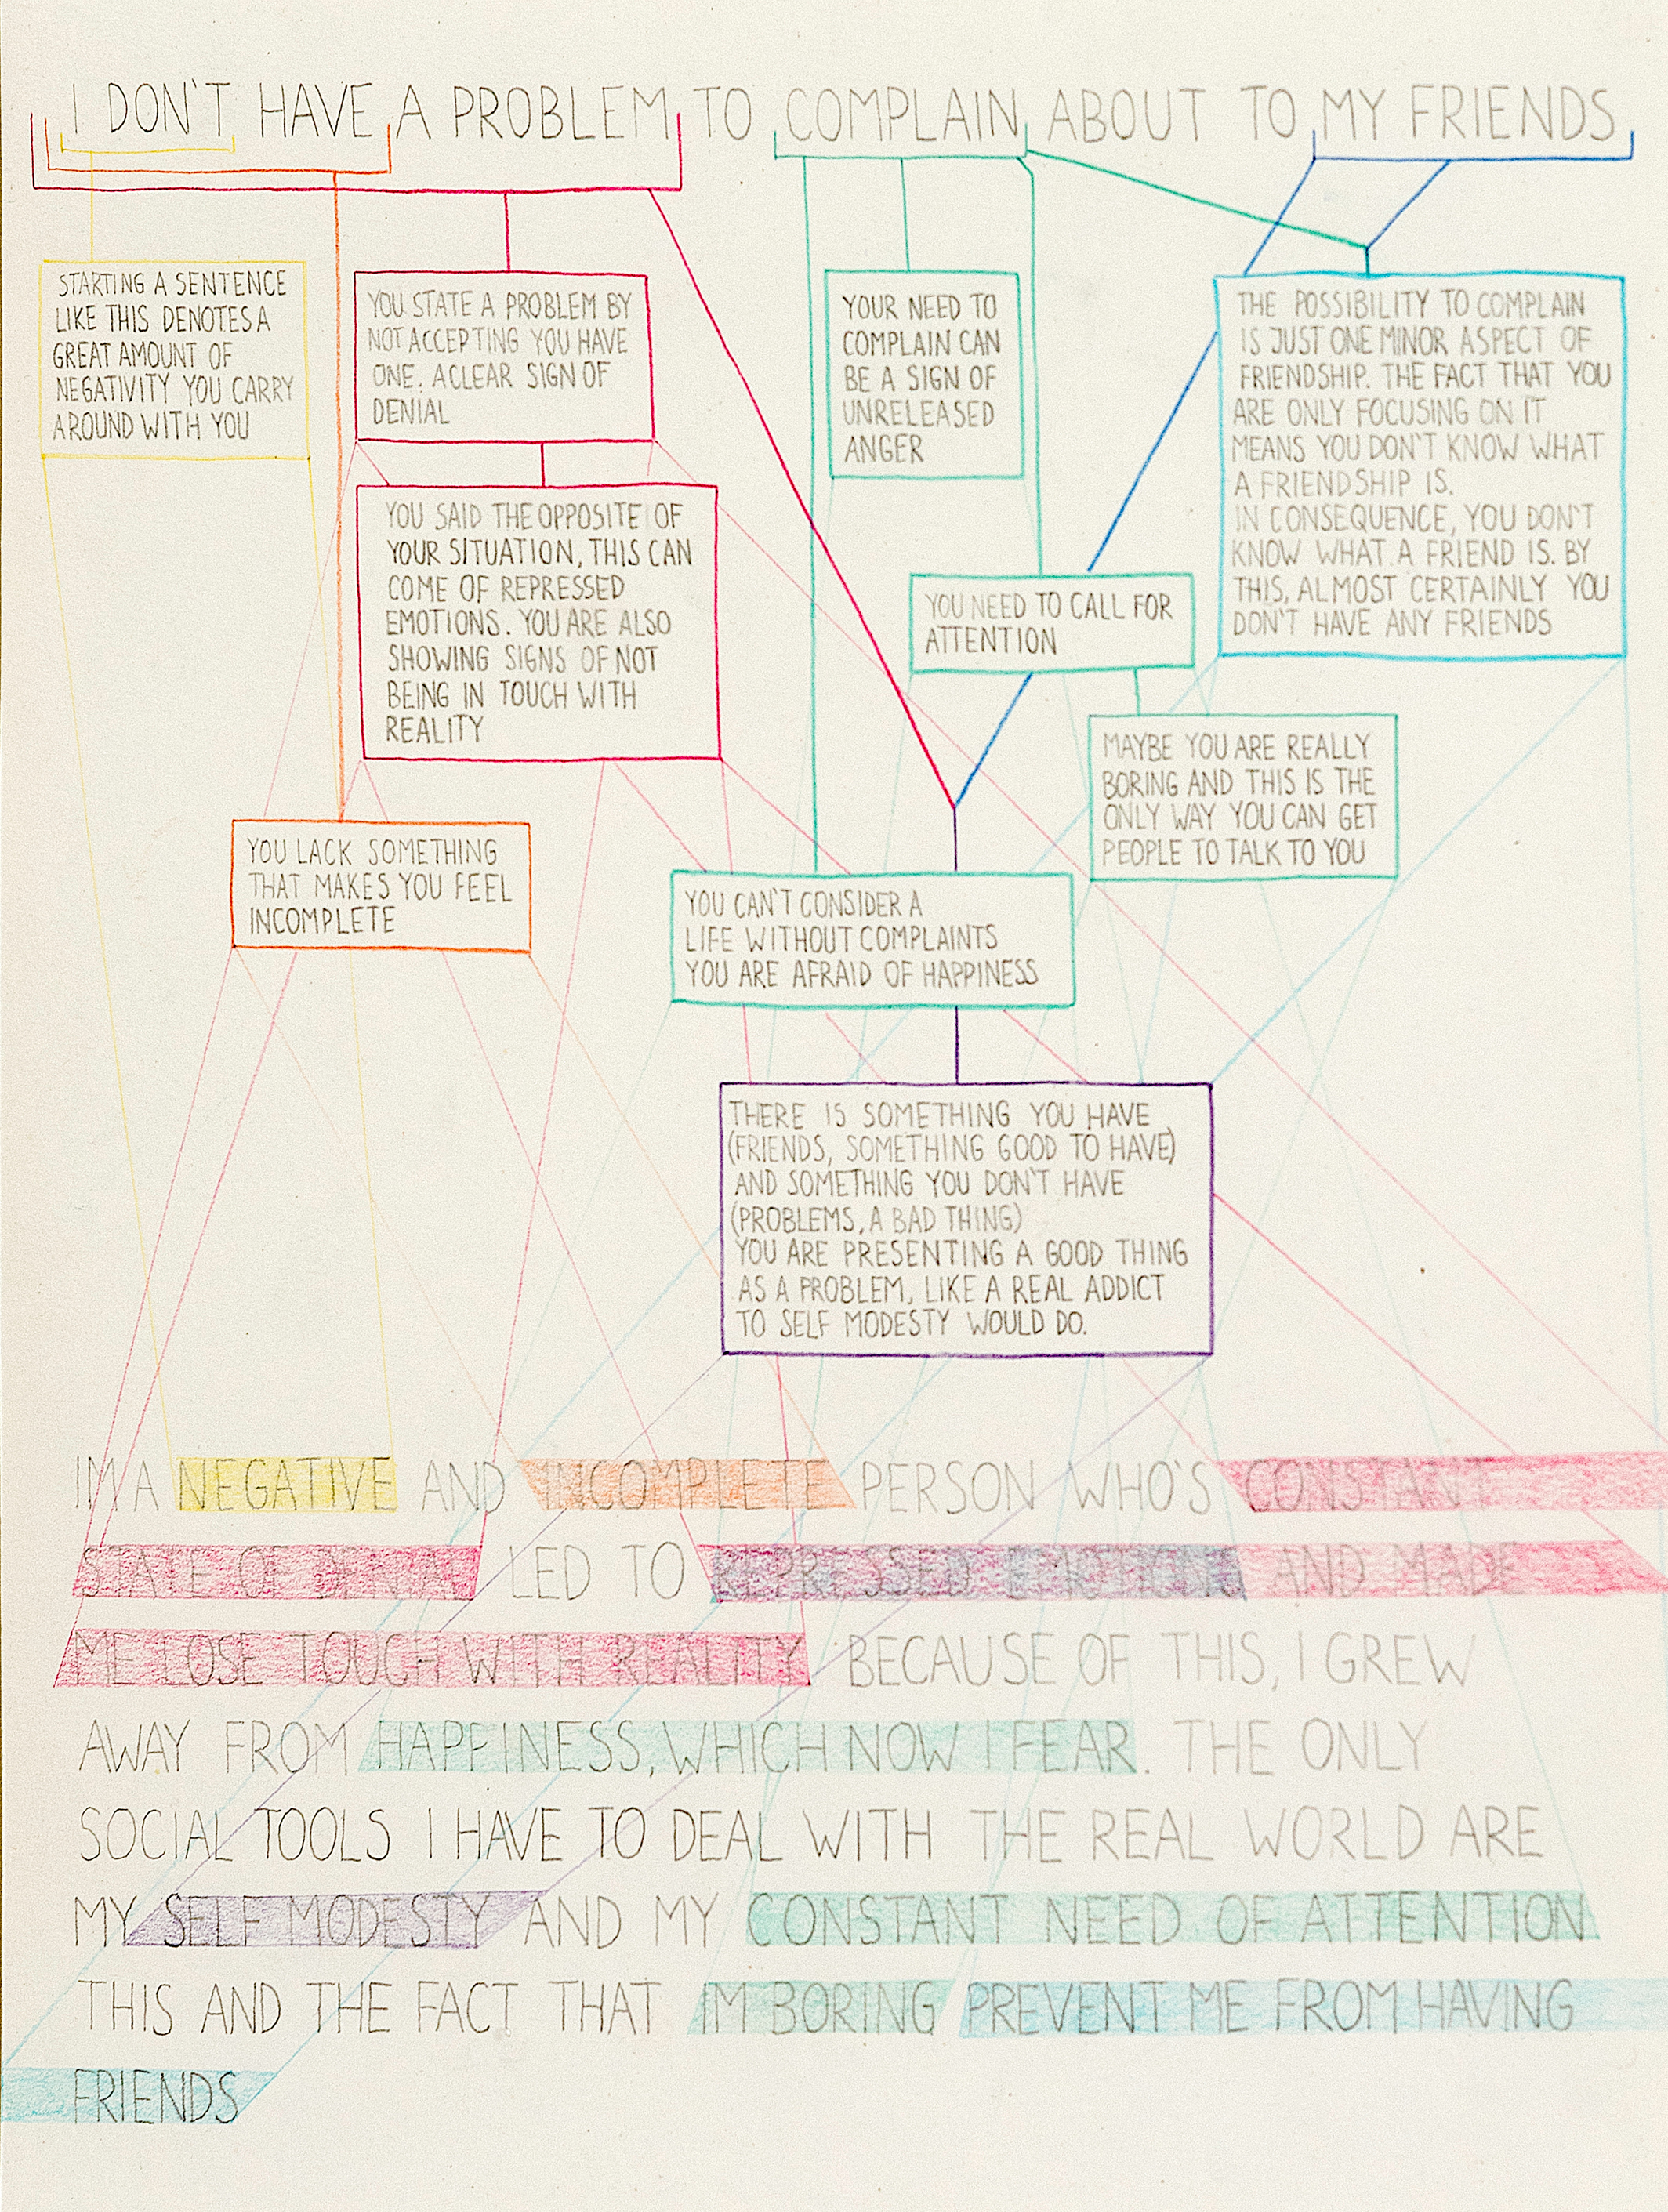 I DON'T HAVE A PROBLEM TO COMPLAIN ABOUT TO MY FRIENDS
STARTING A SENTENCE
LIKE THIS DENOTES A
GREAT AMOUNT OF
NEGATIVITY YOU CARRY
AROUND WITH YOU
YOU STATE A PROBLEM BY
NOT ACCEPTING YOU HAVE
ONE. A CLEAR SIGN OF
DENIAL
YOUR NEED TO
COMPLAIN CAN
BE A SIGN OF
UNRELEASED
ANGER
THE POSSIBILITY TO COMPLAIN
IS JUST ONE MINOR ASPECT OF
FRIENDSHIP. THE FACT THAT YOU
ARE ONLY FOCUSING ON IT
MEANS YOU DON'T KNOW WHAT
A FRIENDSHIP IS.
IN CONSEQUENCE, YOU DON'T
KNOW WHAT A FRIEND IS. BY
THIS, ALMOST CERTAINLY YOU
DON'T HAVE ANY FRIENDS
YOU SAID THE OPPOSITE OF
YOUR SITUATION, THIS CAN
COME OF REPRESSED
EMOTIONS. YOU ARE ALSO
SHOWING SIGNS OF NOT
BEING IN TOUCH WITH
REALITY
YOU NEED TO CALL FOR
ATTENTION
MAYBE YOU ARE REALLY
BORING AND THIS IS THE
ONLY WAY YOU CAN GET
PEOPLE TO TALK TO YOU
YOU LACK SOMETHING
THAT MAKES YOU FEEL
INCOMPLETE
YOU CAN'T CONSIDER A
LIFE WITHOUT COMPLAINTS
YOU ARE AFRAID OF HAPPINESS
THERE IS SOMETHING YOU HAVE
(FRIENDS, SOMETHING GOOD TO HAVE)
AND SOMETHING YOU DON'T HAVE
(PROBLEMS, A BAD THING)
YOU ARE PRESENTING A GOOD THING
AS A PROBLEM, LIKE A REAL ADDICT
TO SELF MODESTY WOULD DO.
IM A NEGATIVE AND INCOMPLETE PERSON WHO'S CONSTANT
STATE OF DENIAL LED TO REPRESSED EMOTIONS AND MADE
ME LOSE TOUCH WITH REALITY BECAUSE OF THIS, I GREW
AWAY FROM HAPPINESS, WHICH NOW I FEAR. THE ONLY
SOCIAL TOOLS I HAVE TO DEAL WITH THE REAL WORLD ARE
MY SELF MODESTY AND MY CONSTANT NEED OF ATTENTION
THIS AND THE FACT THAT IM BORING PREVENT ME FROM HAVING
FRIENDS